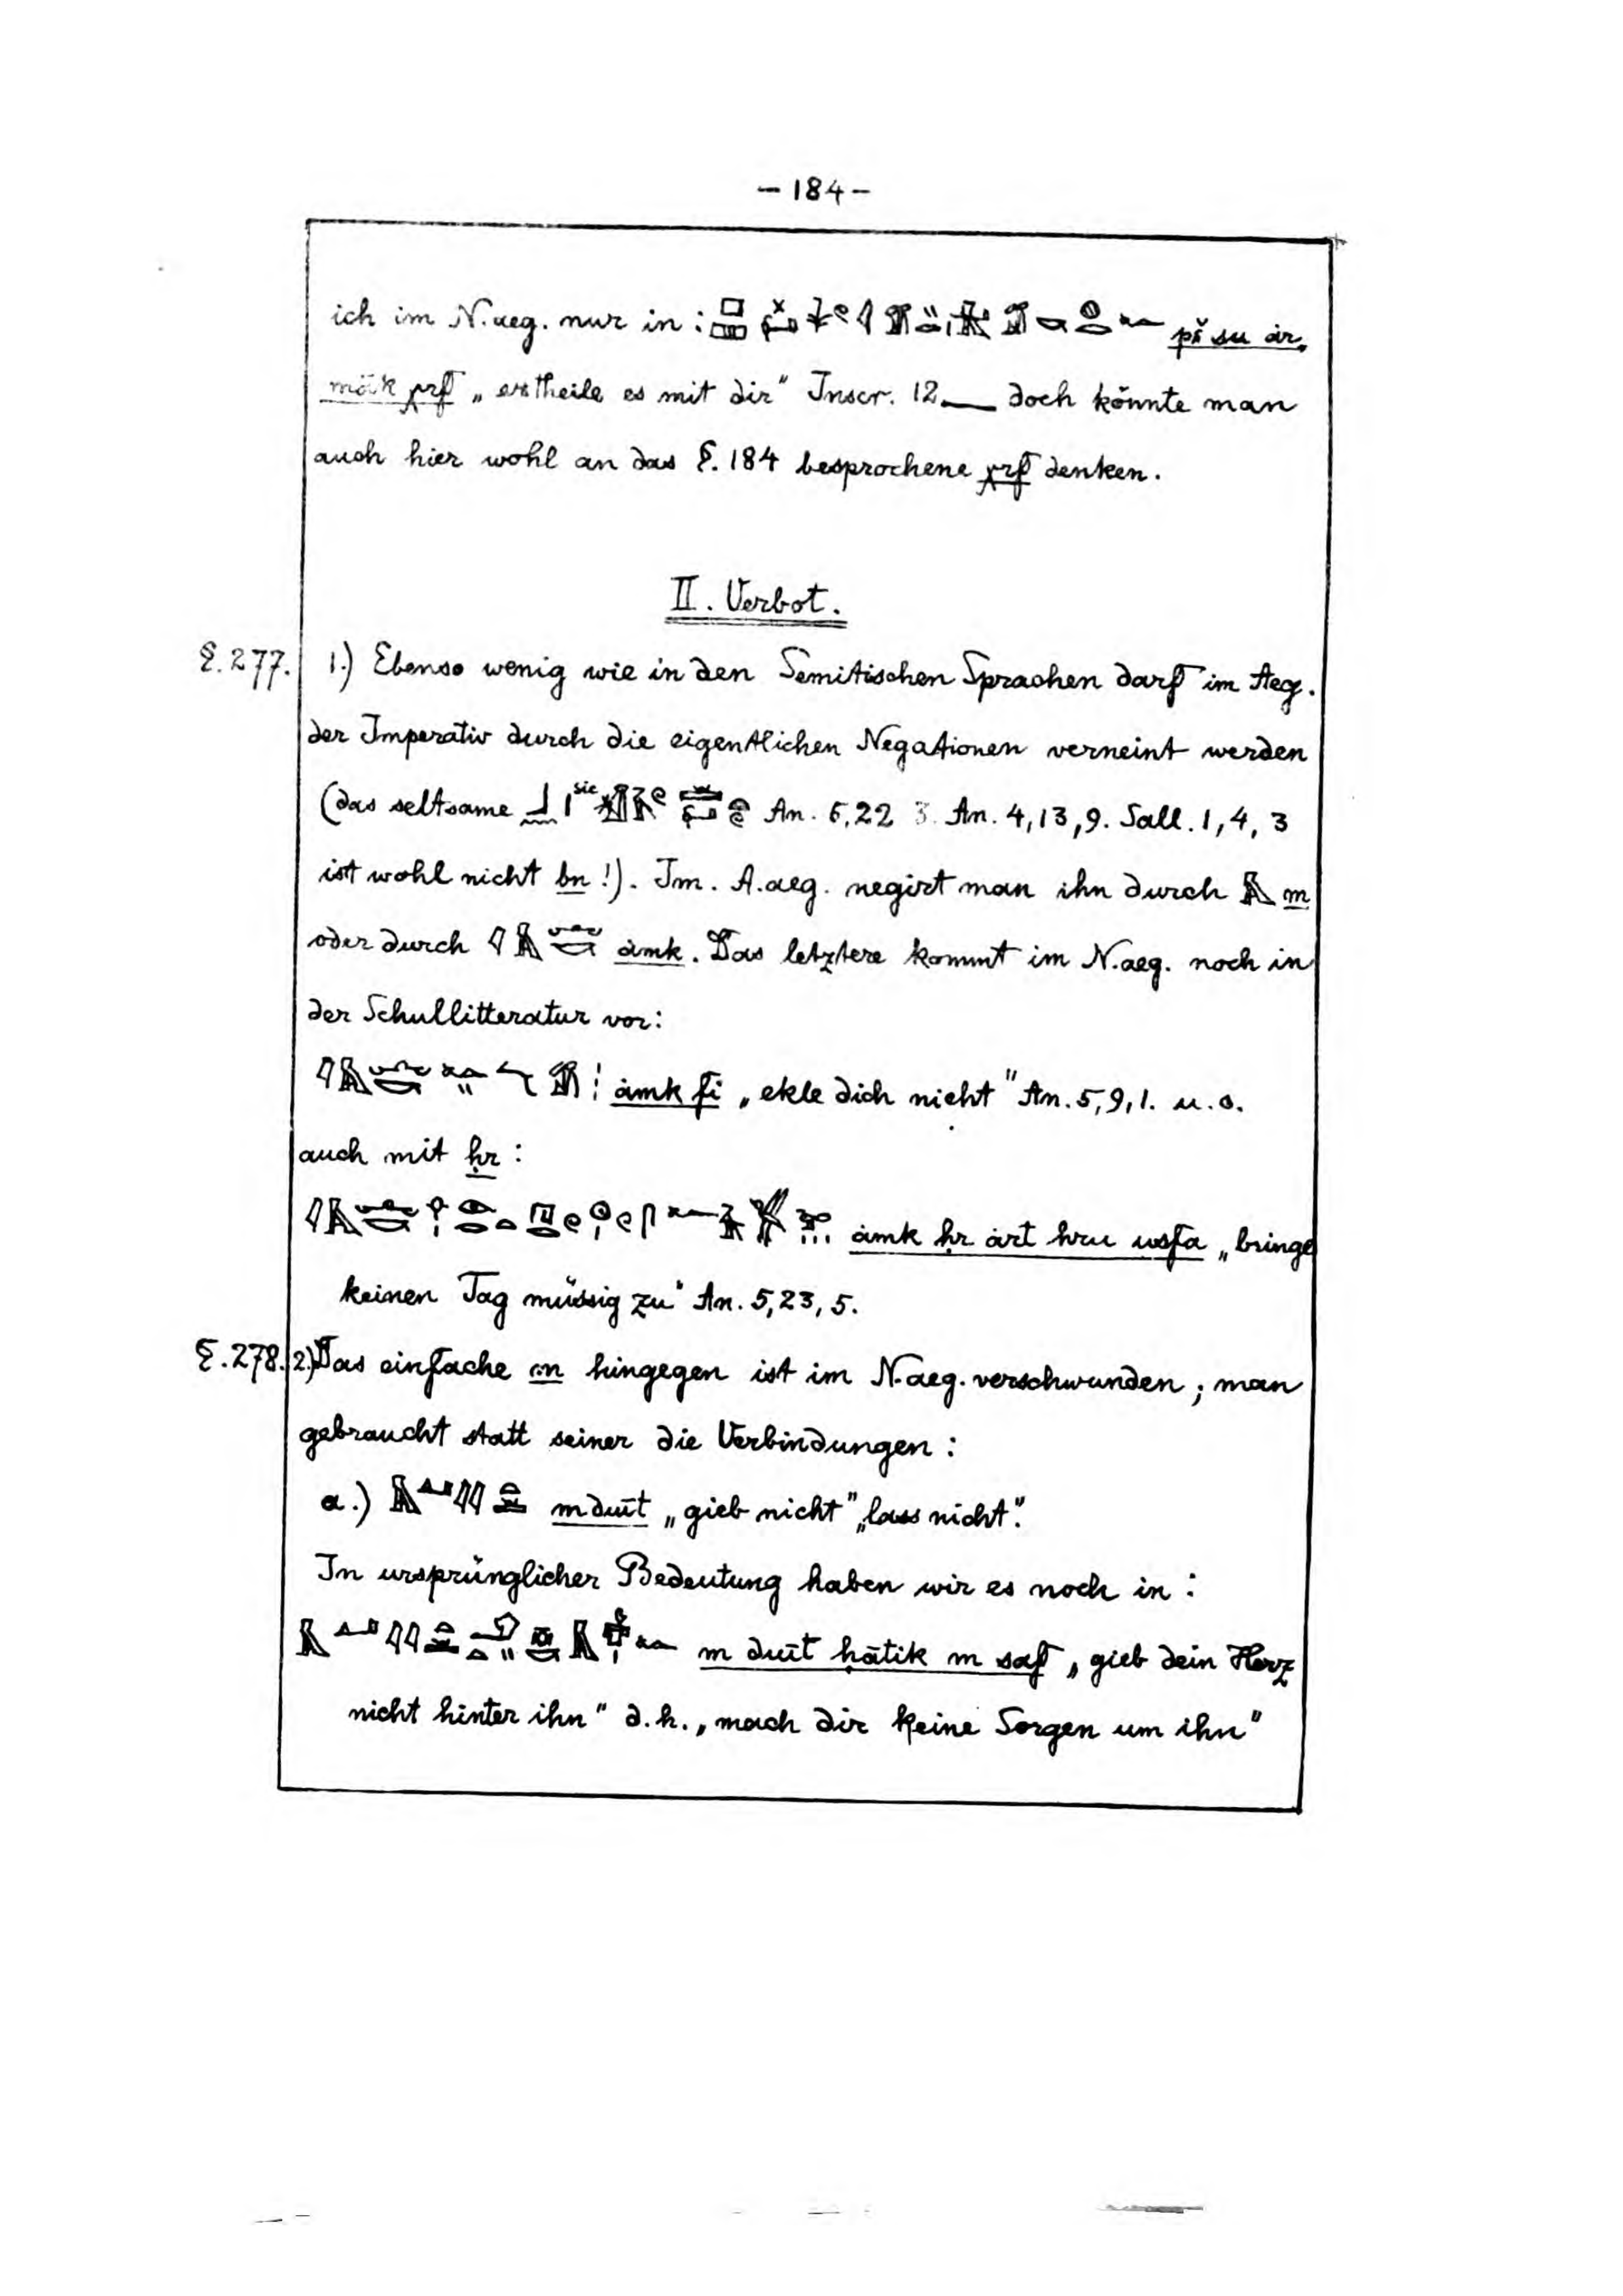 – 184 –
ich im N.aeg. nur in : pš su ár„
māk χrf „ertheile es mit dir“ Inscr. 12 — doch könnte man
auch hier wohl an das §. 184 besprochene χrf denken.
II. Verbot.
§. 277. 1.) Ebenso wenig wie in den Semitischen Sprachen darf im Aeg.
der Imperativ durch die eigentlichen Negationen verneint werden
(das seltsame sic An. 5,22 3. An. 4,13,9. Sall. 1,4,3
ist wohl nicht bn !). Im. A.aeg. negirt man ihn durch m
oder durch ámk. Das letztere kommt im N.aeg. noch in
der Schullitteratur vor:
ámk fi „ekle dich nicht“ An. 5,9,1. u. o.
auch mit ḥr :
ámk ḥr árt hru usfa „bringe
keinen Tag müssig zu“ An. 5,23,5.
§. 278. 2.) Das einfache m hingegen ist im N.aeg. verschwunden ; man
gebraucht statt seiner die Verbindungen :
a.) m duīt „gieb nicht“ „lass nicht“.
In ursprünglicher Bedeutung haben wir es noch in :
m duīt ḥātik m saf „gieb dein Herz
nicht hinter ihn“ d.h. „mach dir keine Sorgen um ihn“